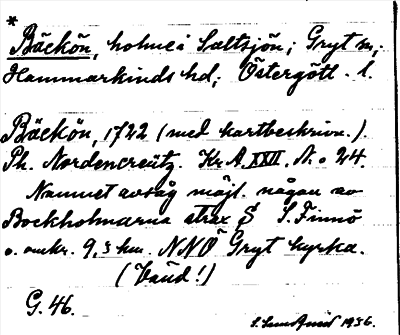 *
Bäckön, holme i Saltsjön; Gryt sn;
Hammarkinds hd; Östergötl. l.
Bäckön, 1722 (med kartbeskrivn.).
Ph. Nordencreütz. Kr. A. XXII. N:o 24.
Namnet avsåg möjl. någon av
Bockholmarna strax S. Finnö
o. omkr. 9,5 km. NNÖ Gryt kyrka.
(Vänd!)
G. 46.
1936.